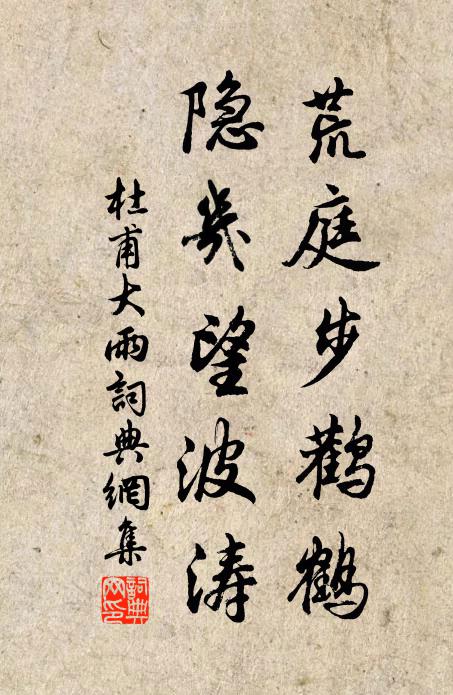 荒庭步鹳鹤
隐几望波涛
杜甫大雨詞典網集
詞典网印